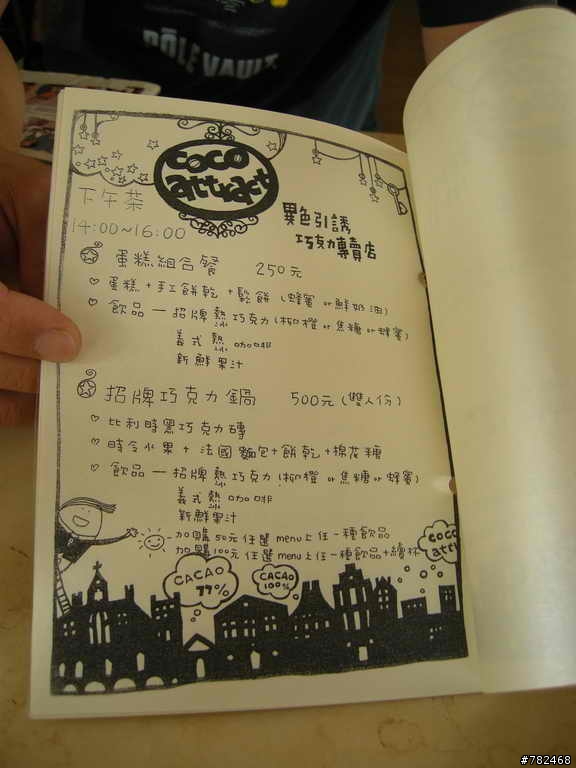 PÔLE VAULT
coco
attract
下午茶
14:00~16:00
異色引誘
巧克力專賣店
蛋糕組合餐 250元
蛋糕+手工餅乾+鬆餅(蜂蜜or鮮奶油)
飲品一招牌熱巧克力(柳橙or焦糖or蜂蜜)
冰
義式熱咖啡
冰
新鮮果汁
招牌巧克力鍋 500元(雙人份)
比利時黑巧克力磚
時令水果+法國麵包+餅乾+棉花糖
飲品一招牌熱巧克力(柳橙or焦糖or蜂蜜)
冰
義式熱咖啡
冰
新鮮果汁
加購50元任選menu上任一種飲品
加購100元任選menu上任一種飲品+續杯
coco
attr
CACAO
77%
CACAO
100%
#782468